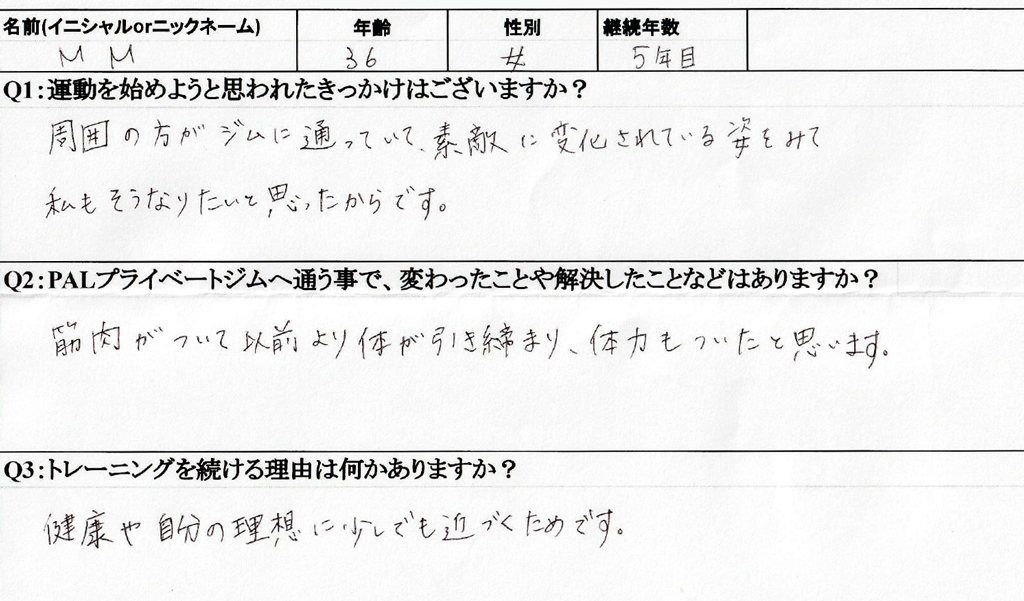 名前(イニシャルorニックネーム) 年齢 性別 継続年数
M M 36 女 5年目
Q1:運動を始めようと思われたきっかけはございますか？
周囲の方がジムに通っていて、素敵に変化されている姿をみて
私もそうなりたいと思ったからです。
Q2:PALプライベートジムへ通う事で、変わったことや解決したことなどはありますか？
筋肉がついて以前より体が引き締まり、体力もついたと思います。
Q3:トレーニングを続ける理由は何かありますか？
健康や自分の理想に少しでも近づくためです。